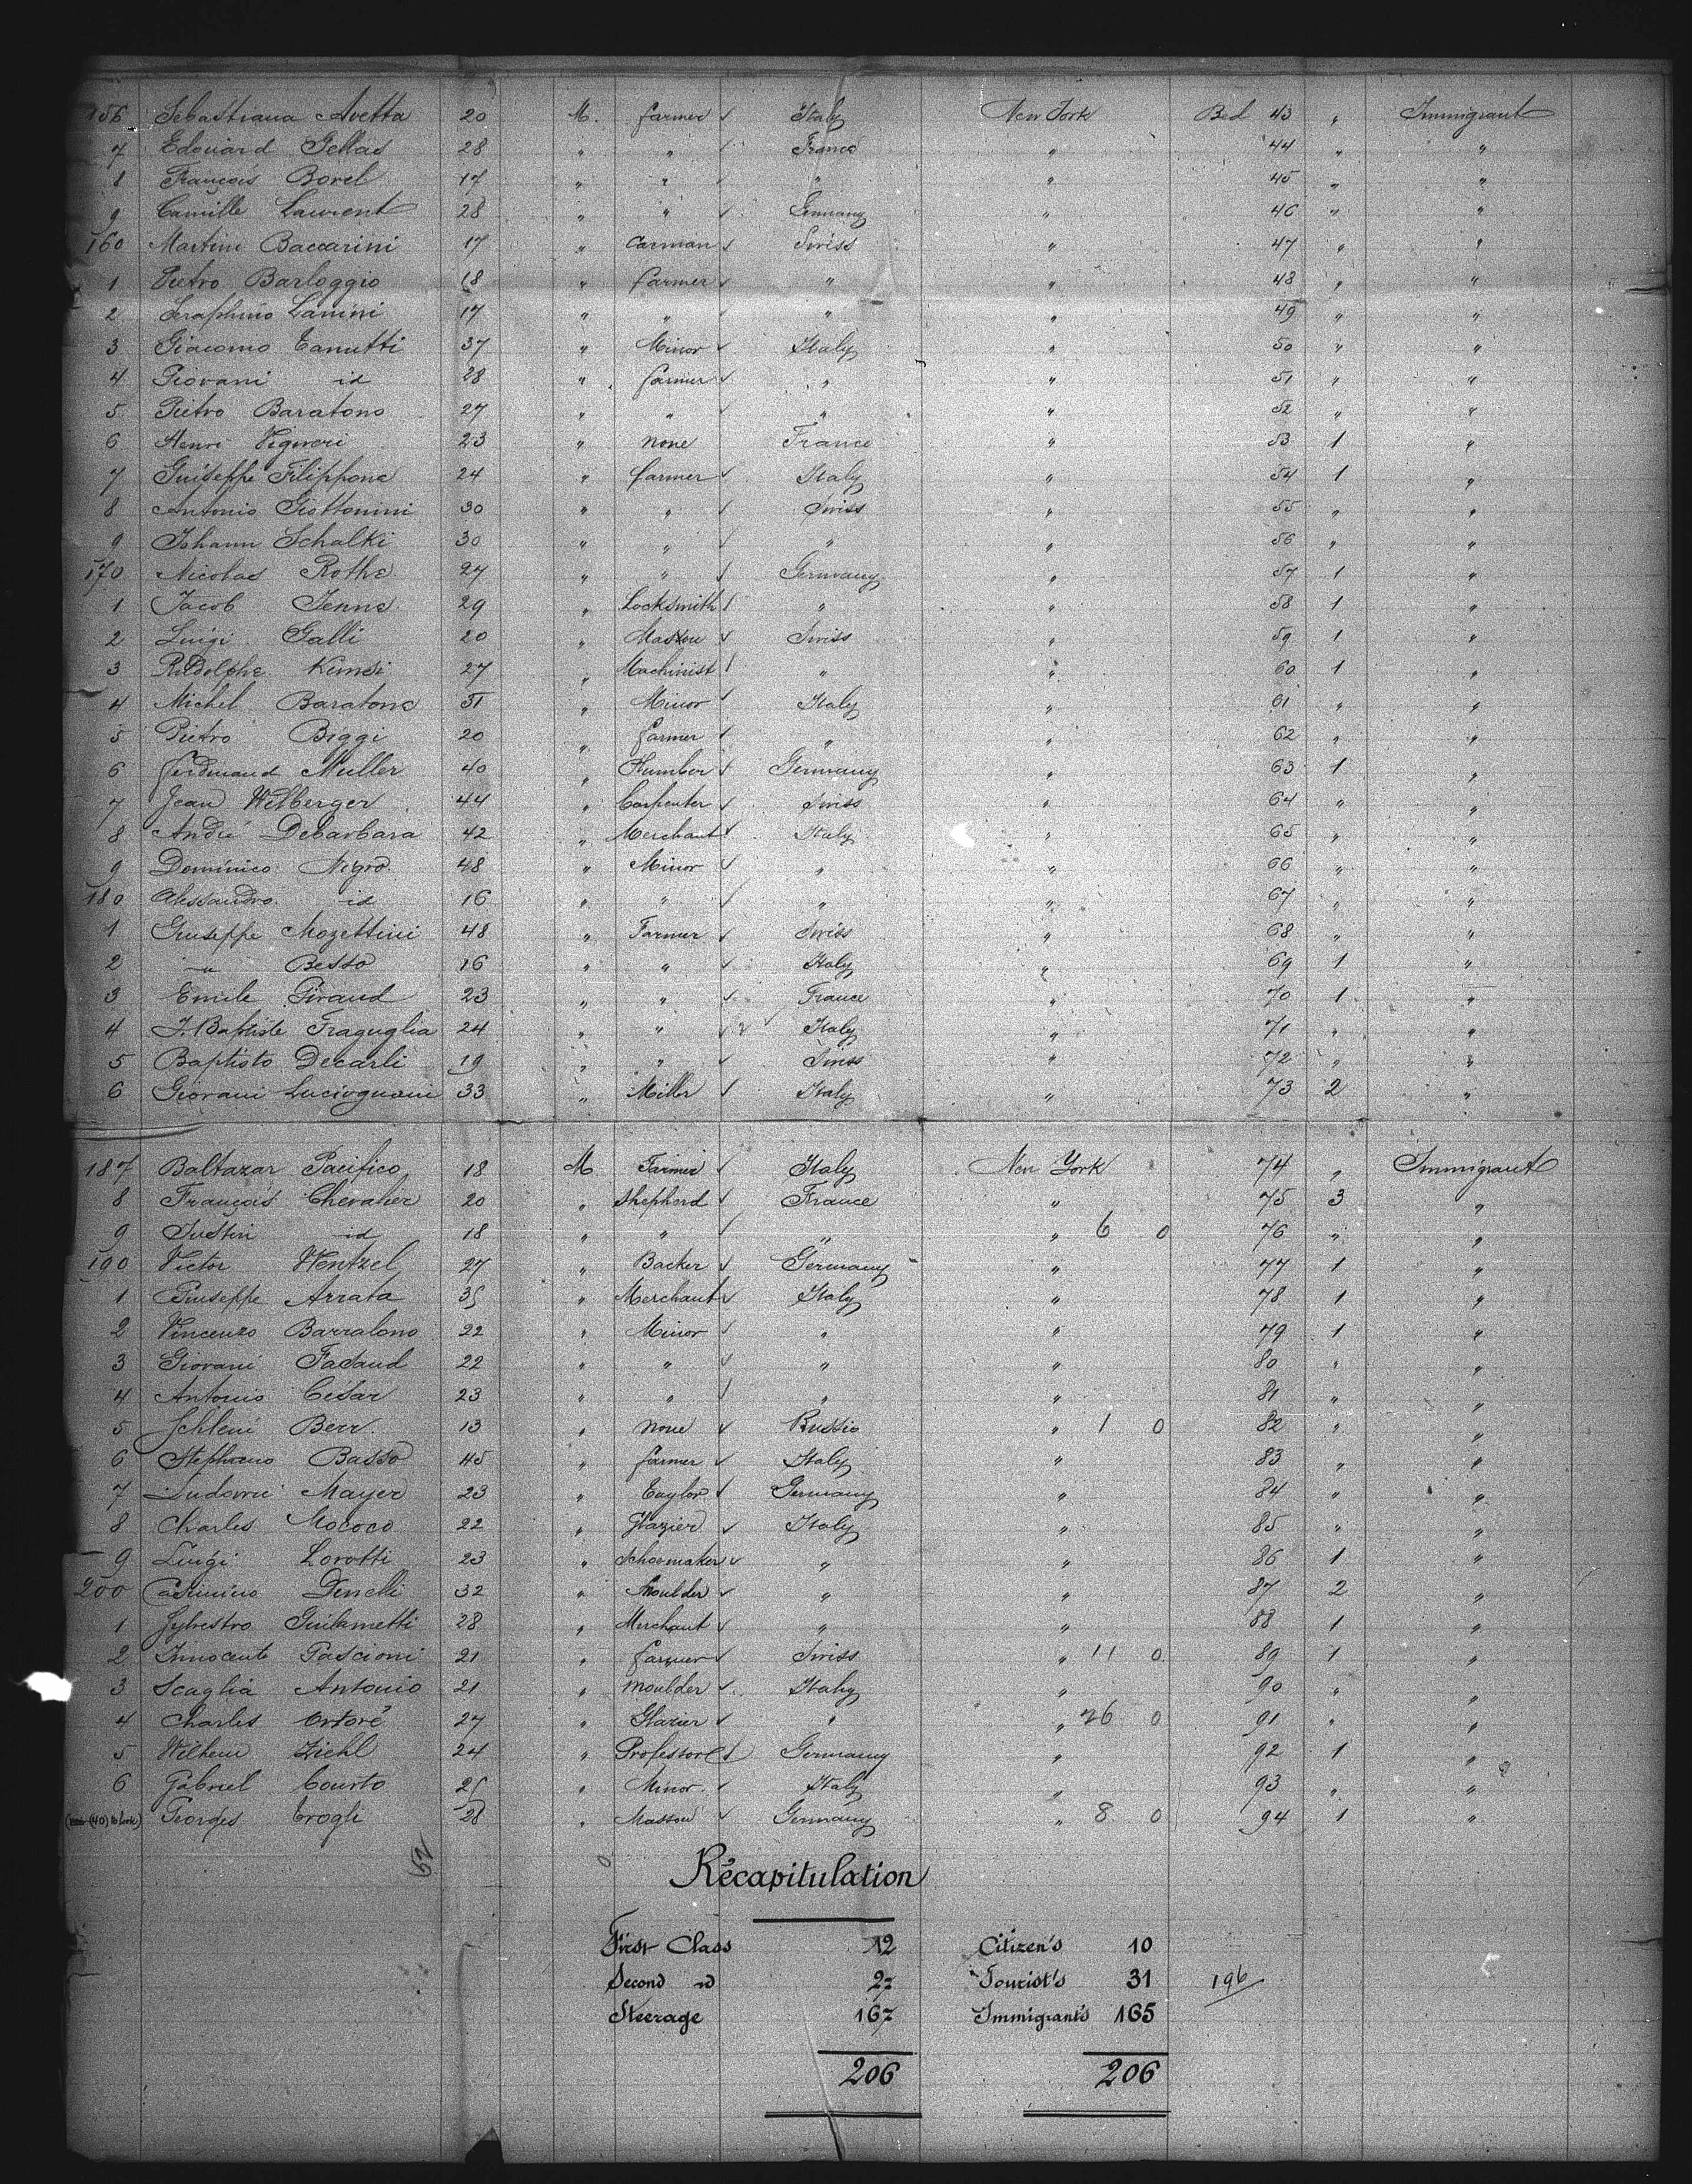 156 Sebastiana Avetta 20 M. farmer ✓ Italy New York Bed 43 " Immigrant
7 Edouard Gellas 28 " " ✓ France " 44 " "
8 François Borel 17 " " ✓ " " 45 " "
9 Camille Laurent 28 " " ✓ Germany " 46 " "
160 Martini Baccarini 17 " Carman ✓ Swiss " 47 " "
1 Pietro Barloggio 18 " farmer ✓ " " 48 " "
2 Seraphino Lanini 17 " " ✓ " " 49 " "
3 Giacomo Zanutti 37 " Minor ✓ Italy " 50 " "
4 Giovani id 28 " farmer ✓ " " 51 " "
5 Pietro Baratono 27 " " ✓ " " 52 " "
6 Henri Vigneri 23 " none France " 53 1 "
7 Guiseppe Filippone 24 " farmer ✓ Italy " 54 1 "
8 Antonio Giottonini 30 " " ✓ Swiss " 55 " "
9 Johann Schalki 30 " " ✓ " " 56 " "
170 Nicolas Rothe 27 " " ✓ Germany " 57 1 "
1 Jacob Jenne 29 " Locksmith ✓ " " 58 1 "
2 Luigi Galli 20 " Masson ✓ Swiss " 59 1 "
3 Rudolphe Kimsi 27 " Machinist ✓ " " 60 1 "
4 Michel Baratono 31 " Minor ✓ Italy " 61 " "
5 Pietro Biggi 20 " farmer ✓ " " 62 " "
6 Ferdinand Muller 40 " Plumber ✓ Germany " 63 1 "
7 Jean Wilberger 44 " Carpenter ✓ Swiss " 64 " "
8 André Debarbara 42 " Merchant ✓ Italy " 65 " "
9 Dominico Nigro 48 " Minor ✓ " " 66 " "
180 Alessandro id 16 " " ✓ " " 67 " "
1 Giuseppe Mozettini 48 " Farmer ✓ Swiss " 68 " "
2 " Besso 16 " " ✓ Italy " 69 1 "
3 Emile Giraud 23 " " ✓ France " 70 1 "
4 J. Baptiste Fraguglia 24 " " ✓ Italy " 71 " "
5 Baptisto Decarli 19 " " ✓ Swiss " 72 " "
6 Giovani 33 " Miller ✓ Italy " 73 2 "
187 Baltazar Pacifico 18 M Farmer ✓ Italy New York 74 " Immigrant
8 François Chevalier 20 " Shepherd ✓ France " 75 3 "
9 Justin id 18 " " ✓ " " 6 0 76 " "
190 Victor Wentzel 27 " Backer ✓ Germany " 77 1 "
1 Giuseppe Arrata 35 " Merchant ✓ Italy " 78 1 "
2 Vincenzo Barralono 22 " Minor ✓ " " 79 1 "
3 Giovani Fasaud 22 " " ✓ " " 80 " "
4 Antonio César 23 " " ✓ " " 81 " "
5 Schleni Berr. 13 " none ✓ Russio " 1 0 82 " "
6 Stephano Basso 45 " farmer ✓ Italy " 83 " "
7 Ludovic Mayer 23 " Taylor ✓ Germany " 84 " "
8 Charles Mococo 22 " Glazier ✓ Italy " 85 " "
9 Luigi Lorotti 23 " Schoemaker ✓ " " 86 1 "
200 Casimino Denelli 32 " Moulder ✓ " " 87 2 "
1 Sylvestro Guilametti 28 " Merchant ✓ " " 88 1 "
2 Innocente Pascioni 21 " farmer ✓ Swiss " 11 0 89 1 "
3 Scaglia Antonio 21 " moulder ✓ Italy " 90 " "
4 Charles Ortoré 27 " Glazier ✓ " " 26 0 91 " "
5 Wilhem Ziehl 24 " Professor ✓ Germany " 92 1 "
6 Gabriel Courto 25 " Minor. ✓ Italy " 93 " "
Georges Trogli 28 " Masson ✓ Germany " 8 0 94 1 "
62
Récapitulation
First Class 12 Citizen's 10
Second id 27 Tourist's 31 196
Steerage 167 Immigrants 165
206 206